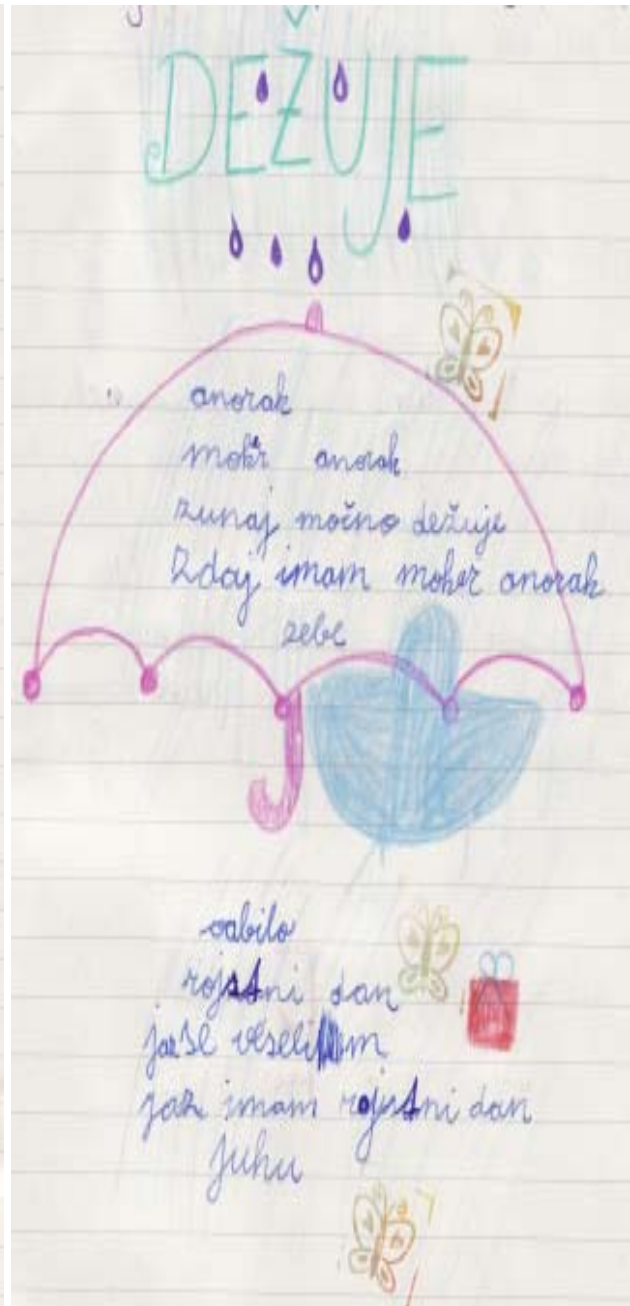 DEŽUJE
anorak
moker anorak
zunaj močno dežuje
Zdaj imam moker anorak
zebe
vabilo
rojstni dan
jaz se veselim
jaz imam rojstni dan
juhu